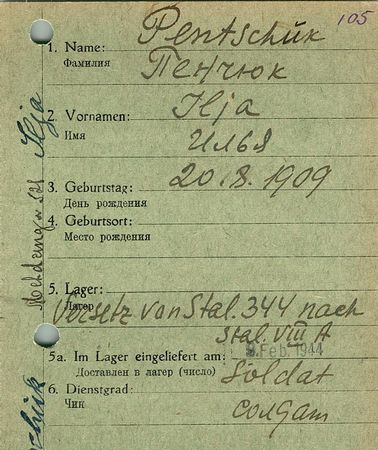 105
1. Name: Pentschük
Фамилия Пенчюк
2. Vornamen: Ilja
Имя Илья
3. Geburtstag: 20.8.1909
День рождения
4. Geburtsort:
Место рождения
5. Lager:
Лагерь Versetz von Stal. 344 nach
Stal. VIII A
5a. Im Lager eingeliefert am: Feb. 1944
Доставлен в лагерь (число)
6. Dienstgrad: Soldat
Чин солдат
Ilja
Meldung